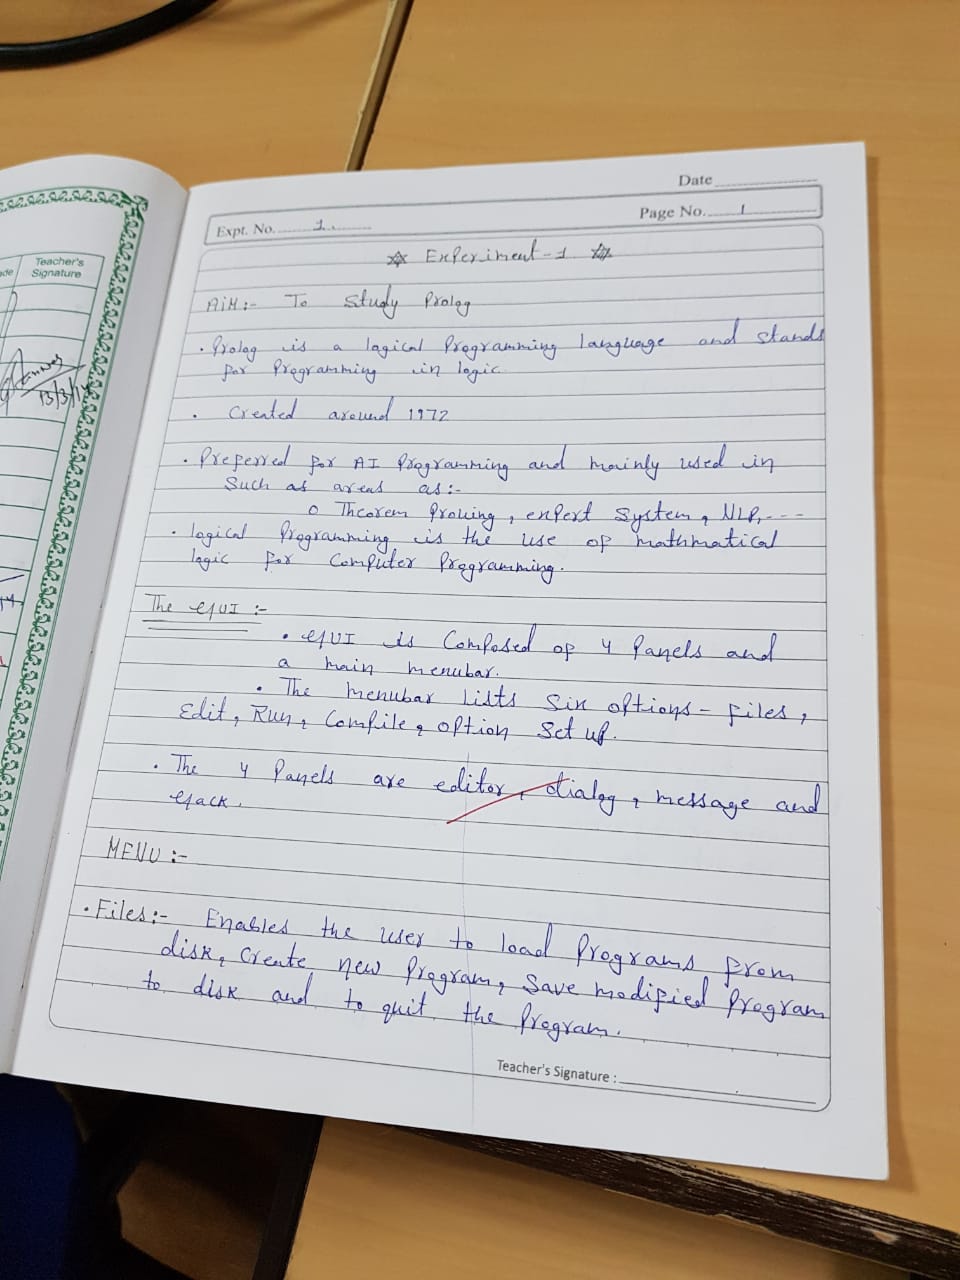 Date
Expt. No. 1.
Page No. 1
Experiment - 1
AIM:- To Study Prolog
• Prolog is a logical Programming language and stands
for Programming in logic.
• Created around 1972
• Preferred for AI Programming and mainly used in
Such as areas as:-
o Theorem Proving, expert System, NLP, - - -
• logical Programming is the use of mathmatical
logic for Computer Programming.
The GUI :-
• GUI is Composed of 4 Panels and
a main menubar.
• The menubar Lists Six options - files,
Edit, Run, Compile, option Set up.
• The 4 Panels are editor, dialog, message and
MENU :-
• Files:- Enables the user to load Programs from
disk, Create new Program, Save modified Program
to disk and to quit the Program.
Teacher's Signature :
Teacher's
Signature